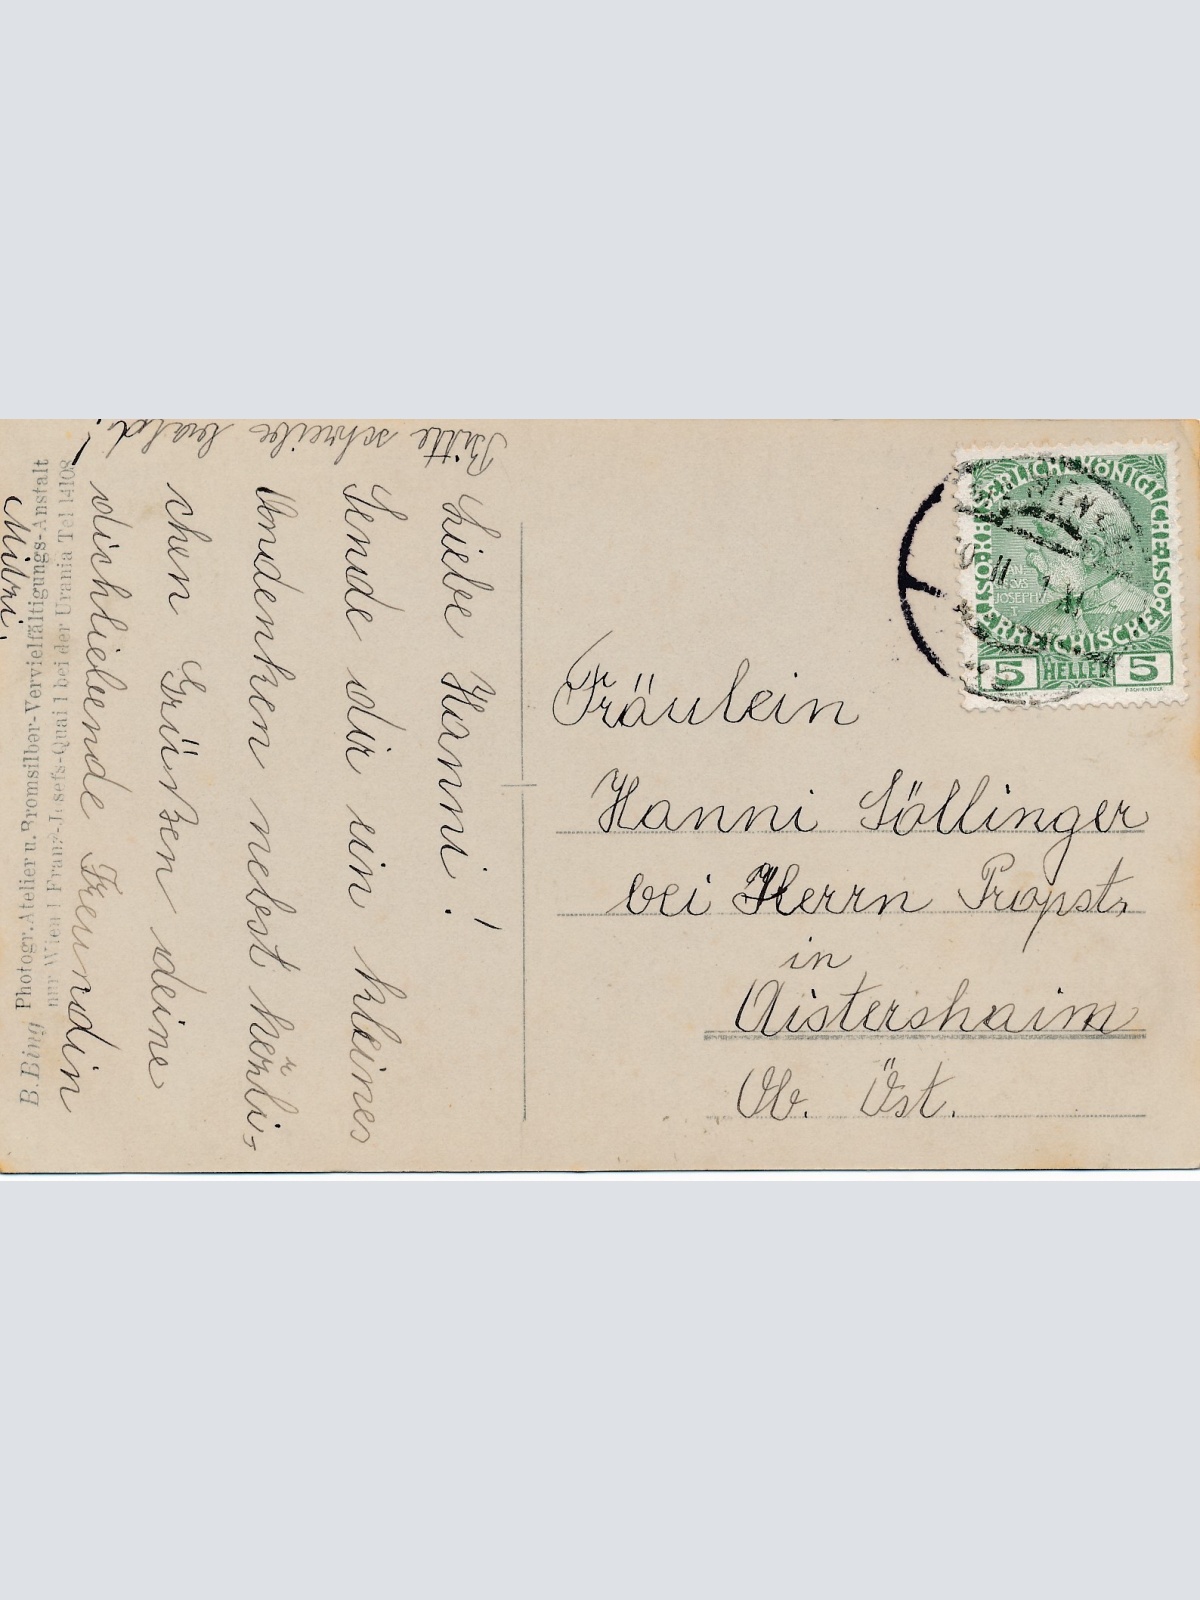 Liebe Hanni!
Sende dir ein kleines
Andenken nebst herzli-
chen Grüßen deine
dichliebende Freundin
Mitzi.
Bitte schreibe bald!
B. Bing Photogr. Atelier u. Bromsilber-Vervielfältigungs-Anstalt
nur Wien I Franz-Josefs-Quai 1 bei der Urania Tel 14108
Fräulein
Hanni Söllinger
bei Herrn Propst,
in
Aistershaim
Ob. Öst.
KAISERLICH KÖNIGLICHE
ÖSTERREICHISCHE POST
JOSEPHVS
I
5 HELLER 5
WIEN